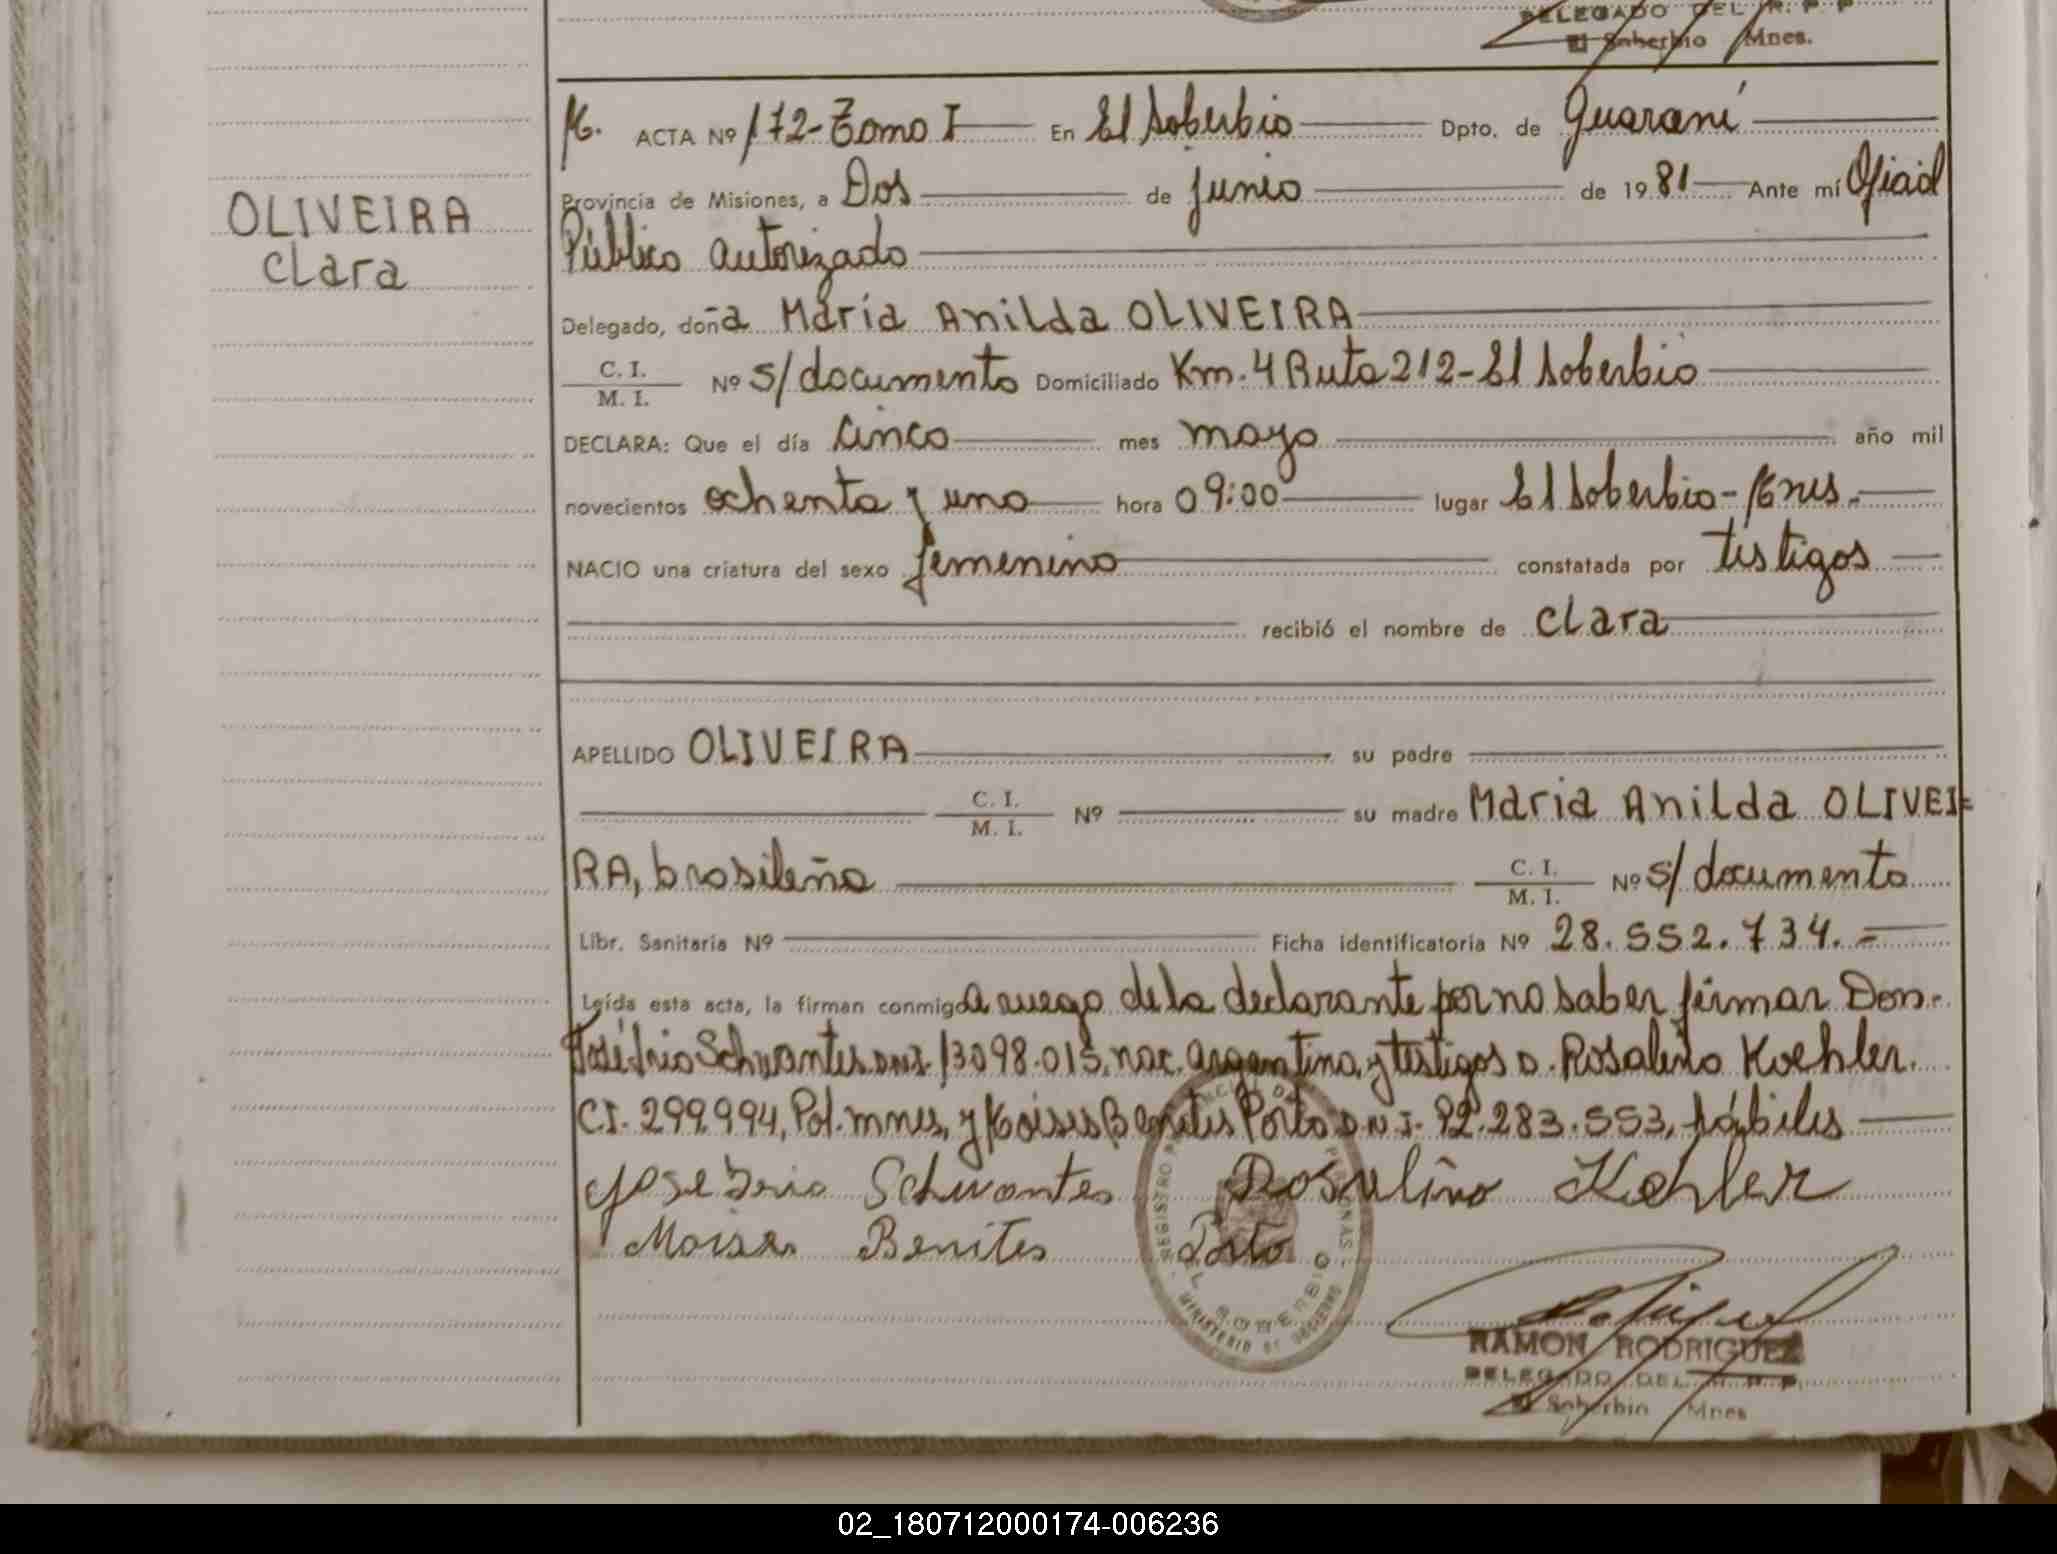 DELEGADO DEL R. P. P.
El Soberbio Mnes.
OLIVEIRA
Clara
ACTA Nº 172-Tomo I En El Soberbio Dpto. de Guaraní
Provincia de Misiones, a Dos de junio de 1981 Ante mí Oficial
Público autorizado
Delegado, doña María Anilda OLIVEIRA
C. I.
M. I. Nº s/documento Domiciliado Km. 4 Ruta 212-El Soberbio
DECLARA: Que el día cinco mes mayo año mil
novecientos ochenta y uno hora 09:00 lugar El Soberbio-Mnes.-
NACIO una criatura del sexo femenino constatada por testigos
recibió el nombre de Clara
APELLIDO OLIVEIRA su padre
C. I.
M. I. Nº su madre María Anilda OLIVEI=
RA, brasileña C. I.
M. I. Nº s/documento
Libr. Sanitaria Nº Ficha identificatoria Nº 28.552.734.=
Leída esta acta, la firman conmigo a ruego de la declarante por no saber firmar Don.
José Irio Schwantes DNI. 13098.015, nac. argentina, y testigos D. Rosalino Koehler.
C.I. 299.994, Pol. mnes, y Moises Benites Porto D.N.I. 92.283.553, hábiles
Jose Irio Schwantes Rosalino Kohler
Moises Benites Porto
REGISTRO PROVINCIAL DE PERSONAS
EL SOBERBIO
MINISTERIO DE GOBIERNO
RAMON RODRIGUEZ
DELEGADO DEL R. P. P.
El Soberbio Mnes
02_180712000174-006236